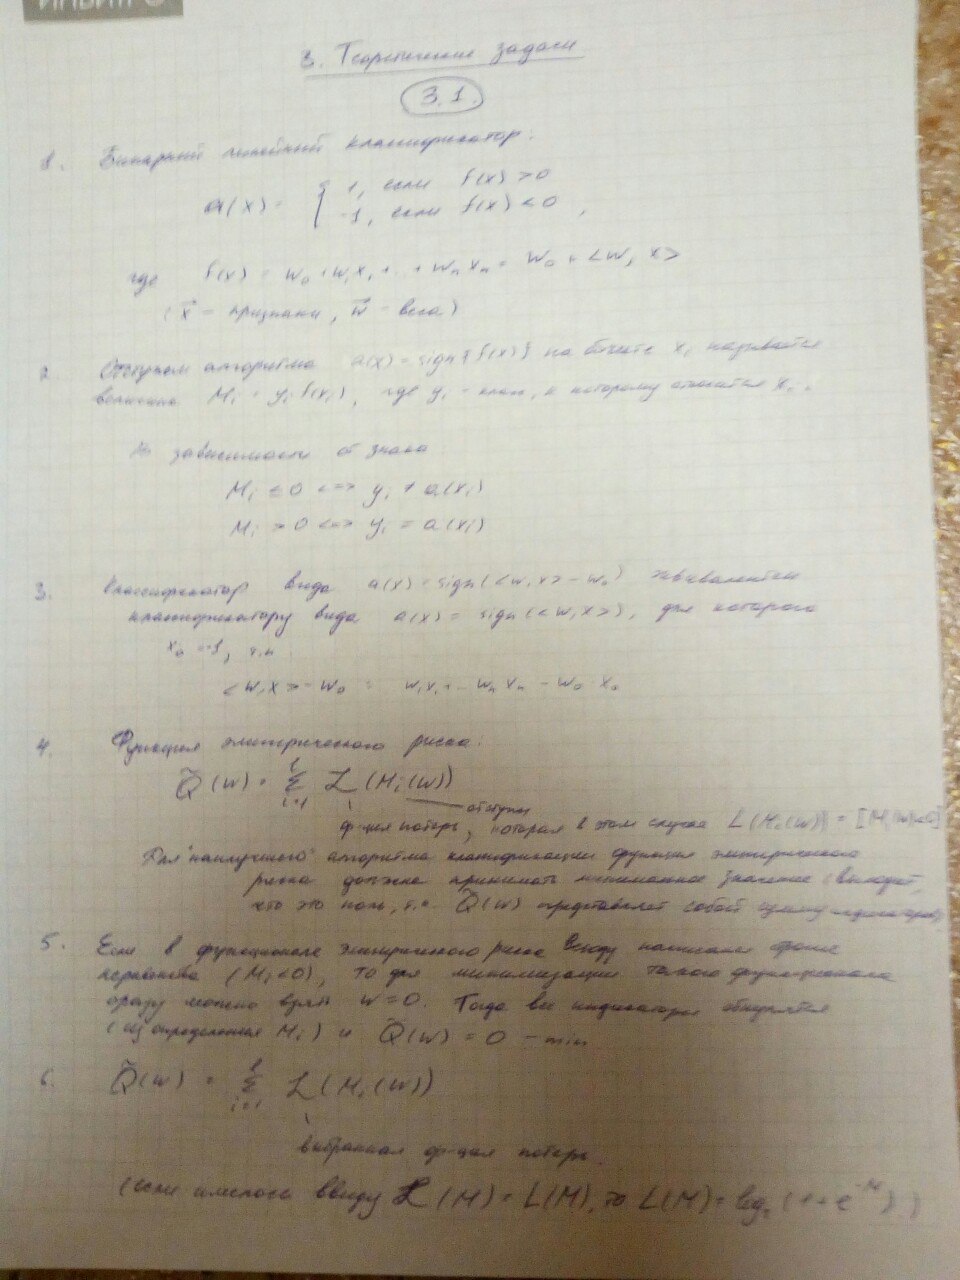 ИНВИТРО
3. Теоретические задачи
3.1
1. Бинарный линейный классификатор.
a(x) = { 1, если f(x) > 0
-1, если f(x) < 0 ,
где f(x) = w₀ + w₁x₁ + .. + wₙxₙ = w₀ + <w, x>
(x⃗ - признаки, w⃗ - веса)
2. Отступом алгоритма a(x) = sign{f(x)} на объекте xᵢ называется
величина Mᵢ = yᵢ f(xᵢ), где yᵢ - класс, к которому относится xᵢ.
зависимости от знака
Mᵢ ≤ 0 <=> yᵢ ≠ a(xᵢ)
Mᵢ > 0 <=> yᵢ = a(xᵢ)
3. Классификатор вида a(x) = sign(<w,x> - w₀) эквивалентен
классификатору вида a(x) = sign(<w,x>), для которого
x₀ = -1, т.к.
<w,x> - w₀ = w₁x₁ + .. wₙxₙ - w₀ x₀
4. Функция эмпирического риска:
Q̃(w) = Σ ℒ(Mᵢ(w))
отступ
ф-ция потерь, которая в этом случае L(Mᵢ(w)) = [M(w)<0]
Для "наилучшего" алгоритма классификации функция эмпирического
риска должна принимать минимальное значение (выходит,
что это ноль, т.к. Q̃(w) представляет собой сумму индикаторов)
5. Если в функционале эмпирического риска всюду написаны строгие
неравенства (Mᵢ<0), то для минимизации такого функционала
сразу можно взять w = 0. Тогда все индикаторы обнулятся
(из определения Mᵢ) и Q̃(w) = 0 - min
6. Q̃(w) = Σ ℒ(Mᵢ(w))
выбранная ф-ция потерь.
(если имелось ввиду ℒ(M) = L(M), то L(M) = log₂(1+e⁻ᴹ).)